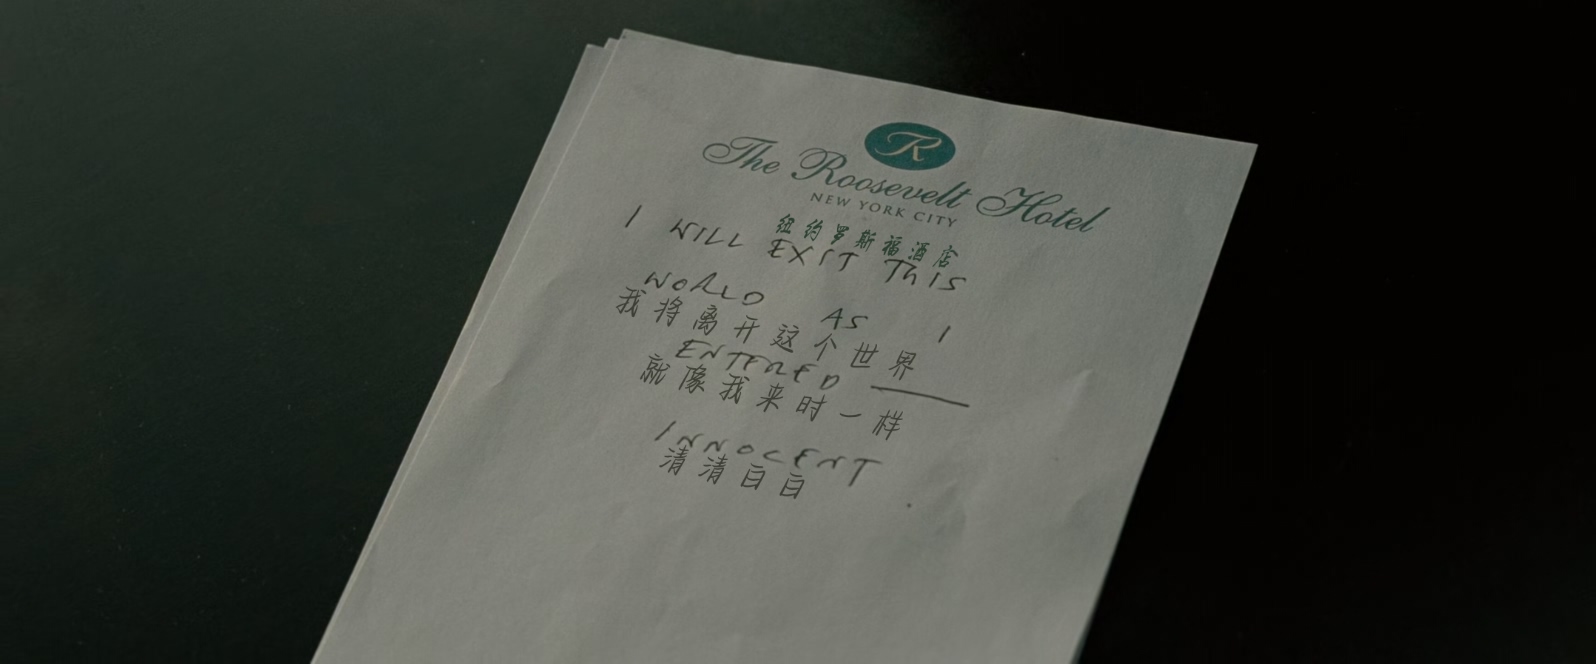 R
The Roosevelt Hotel
NEW YORK CITY
纽约罗斯福酒店
I WILL EXIT ThIS
WORLD AS I
我将离开这个世界
ENTERED —
就像我来时一样
INNOCENT
清清白白